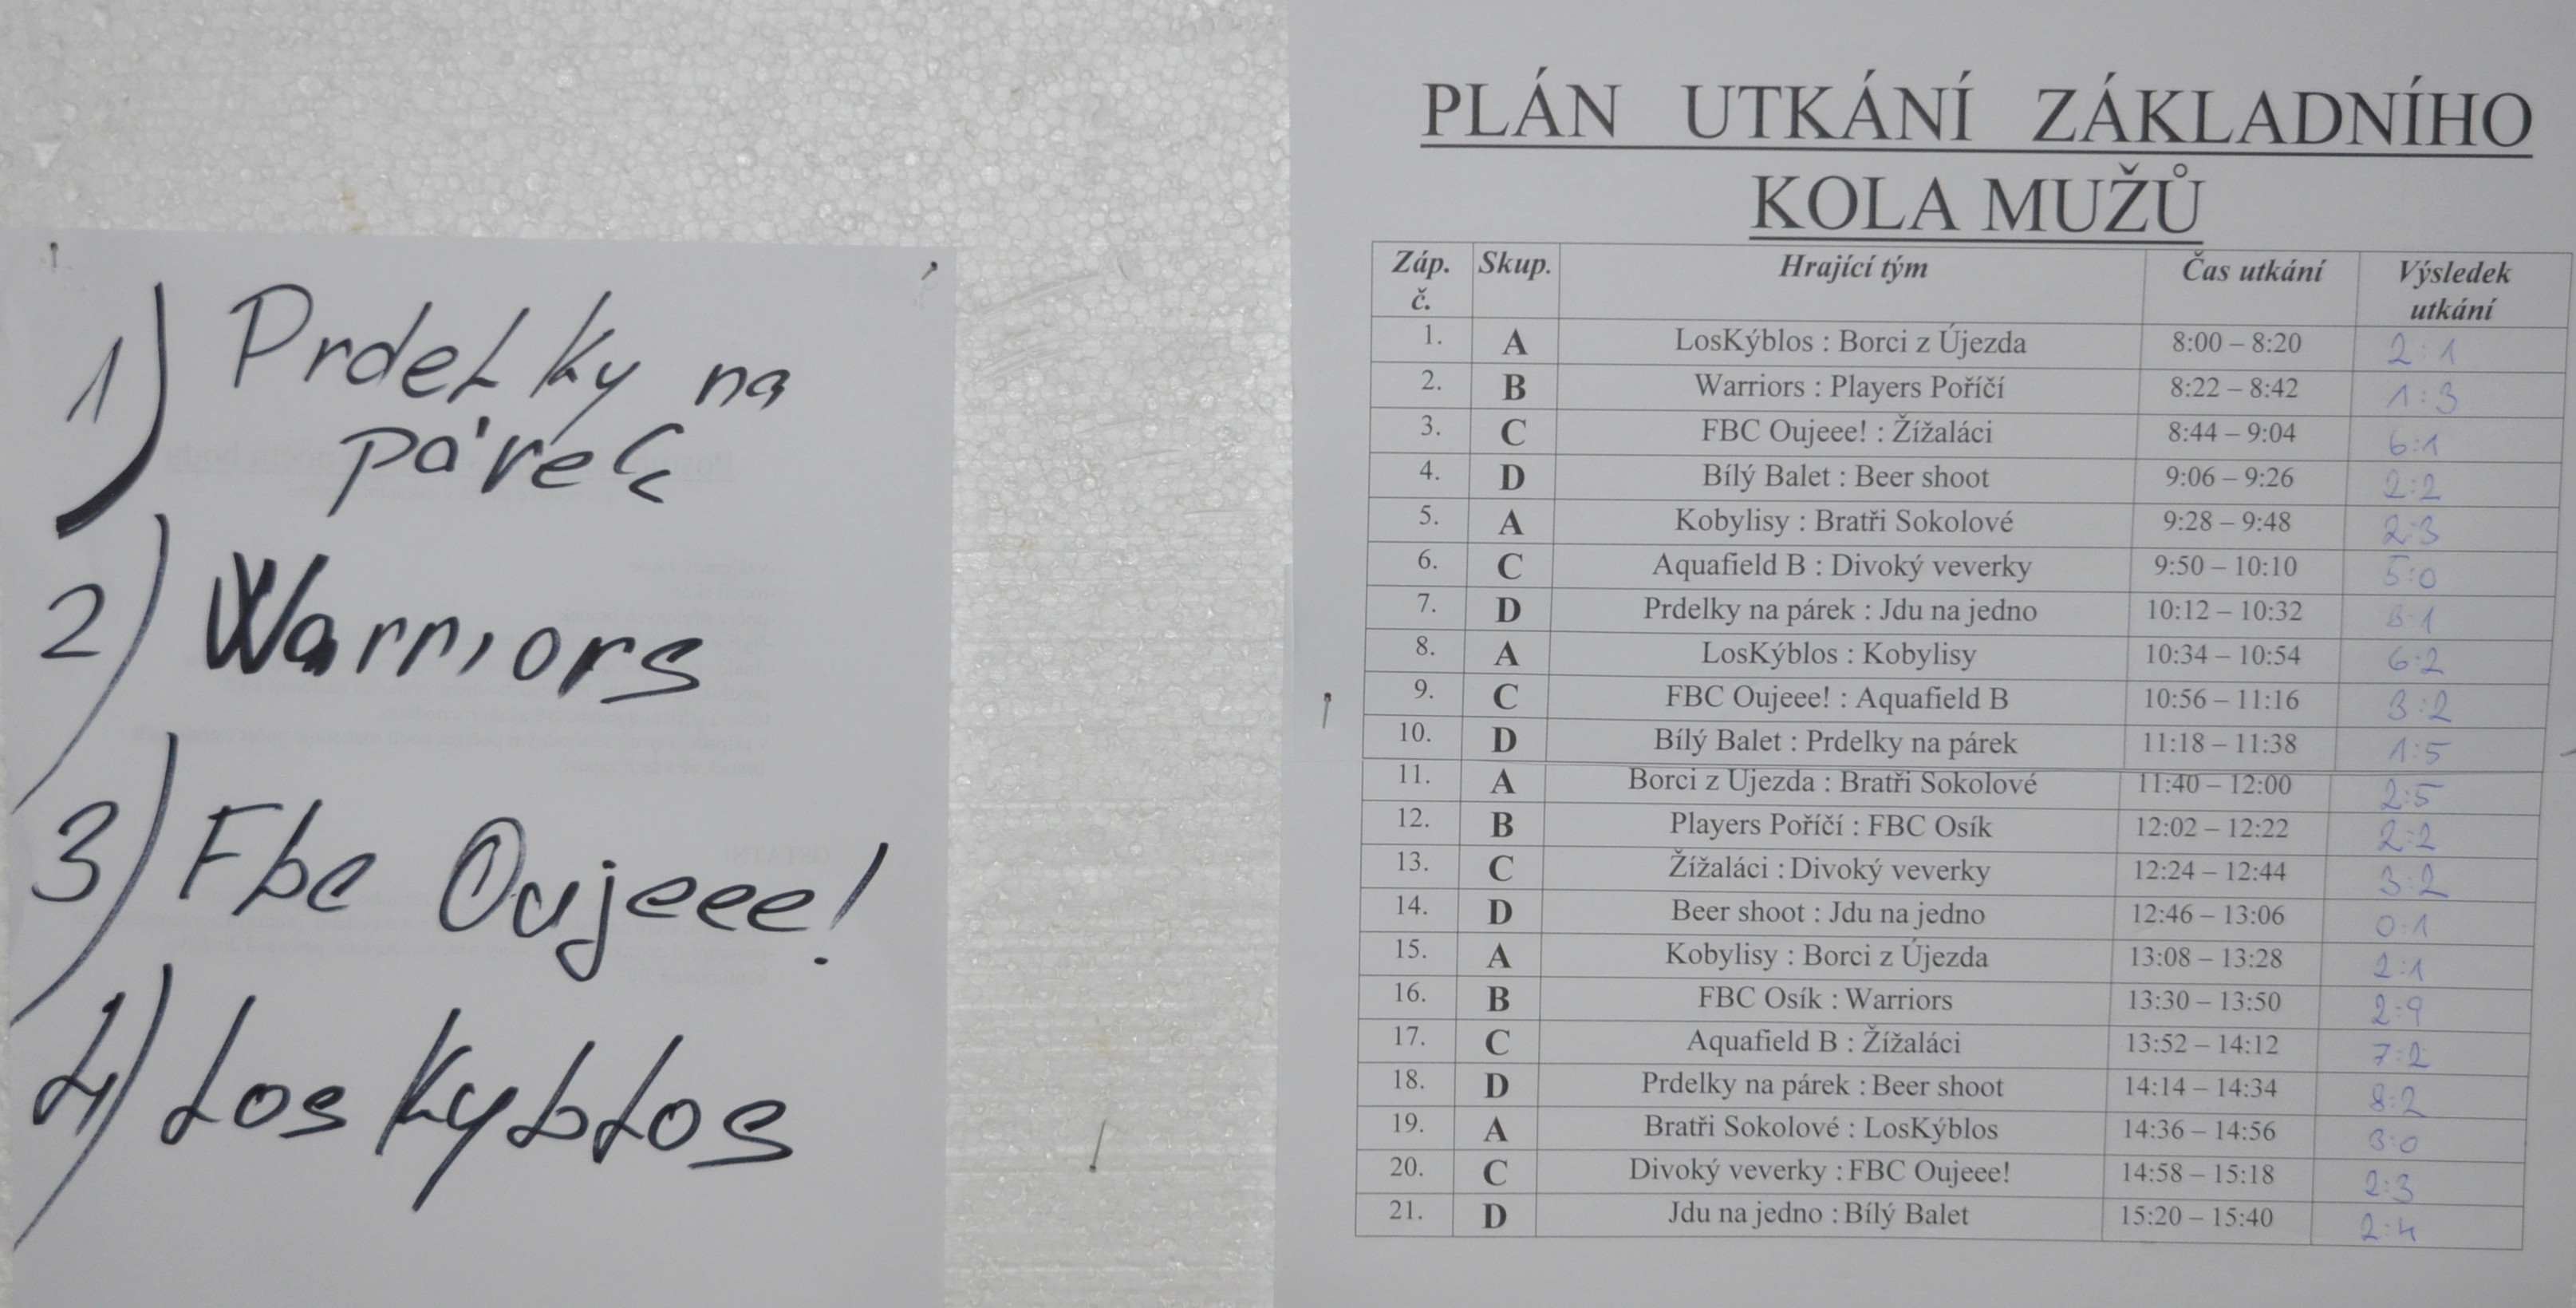 1) Prdelky na
párek
2) Warriors
3) Fbc Oujeee!
4) Los Kyblos
PLÁN UTKÁNÍ ZÁKLADNÍHO
KOLA MUŽŮ
Záp. č. Skup. Hrající tým Čas utkání Výsledek utkání
1. A LosKýblos : Borci z Újezda 8:00 – 8:20 2:1
2. B Warriors : Players Poříčí 8:22 – 8:42 1:3
3. C FBC Oujeee! : Žížaláci 8:44 – 9:04 6:1
4. D Bílý Balet : Beer shoot 9:06 – 9:26 2:2
5. A Kobylisy : Bratři Sokolové 9:28 – 9:48 2:3
6. C Aquafield B : Divoký veverky 9:50 – 10:10 5:0
7. D Prdelky na párek : Jdu na jedno 10:12 – 10:32
8. A LosKýblos : Kobylisy 10:34 – 10:54 6:2
9. C FBC Oujeee! : Aquafield B 10:56 – 11:16 3:2
10. D Bílý Balet : Prdelky na párek 11:18 – 11:38 1:5
11. A Borci z Újezda : Bratři Sokolové 11:40 – 12:00 2:5
12. B Players Poříčí : FBC Osík 12:02 – 12:22 2:2
13. C Žížaláci : Divoký veverky 12:24 – 12:44 3:2
14. D Beer shoot : Jdu na jedno 12:46 – 13:06 0:1
15. A Kobylisy : Borci z Újezda 13:08 – 13:28 2:1
16. B FBC Osík : Warriors 13:30 – 13:50 2:9
17. C Aquafield B : Žížaláci 13:52 – 14:12 7:2
18. D Prdelky na párek : Beer shoot 14:14 – 14:34 8:2
19. A Bratři Sokolové : LosKýblos 14:36 – 14:56 3:0
20. C Divoký veverky : FBC Oujeee! 14:58 – 15:18 2:3
21. D Jdu na jedno : Bílý Balet 15:20 – 15:40 2:4